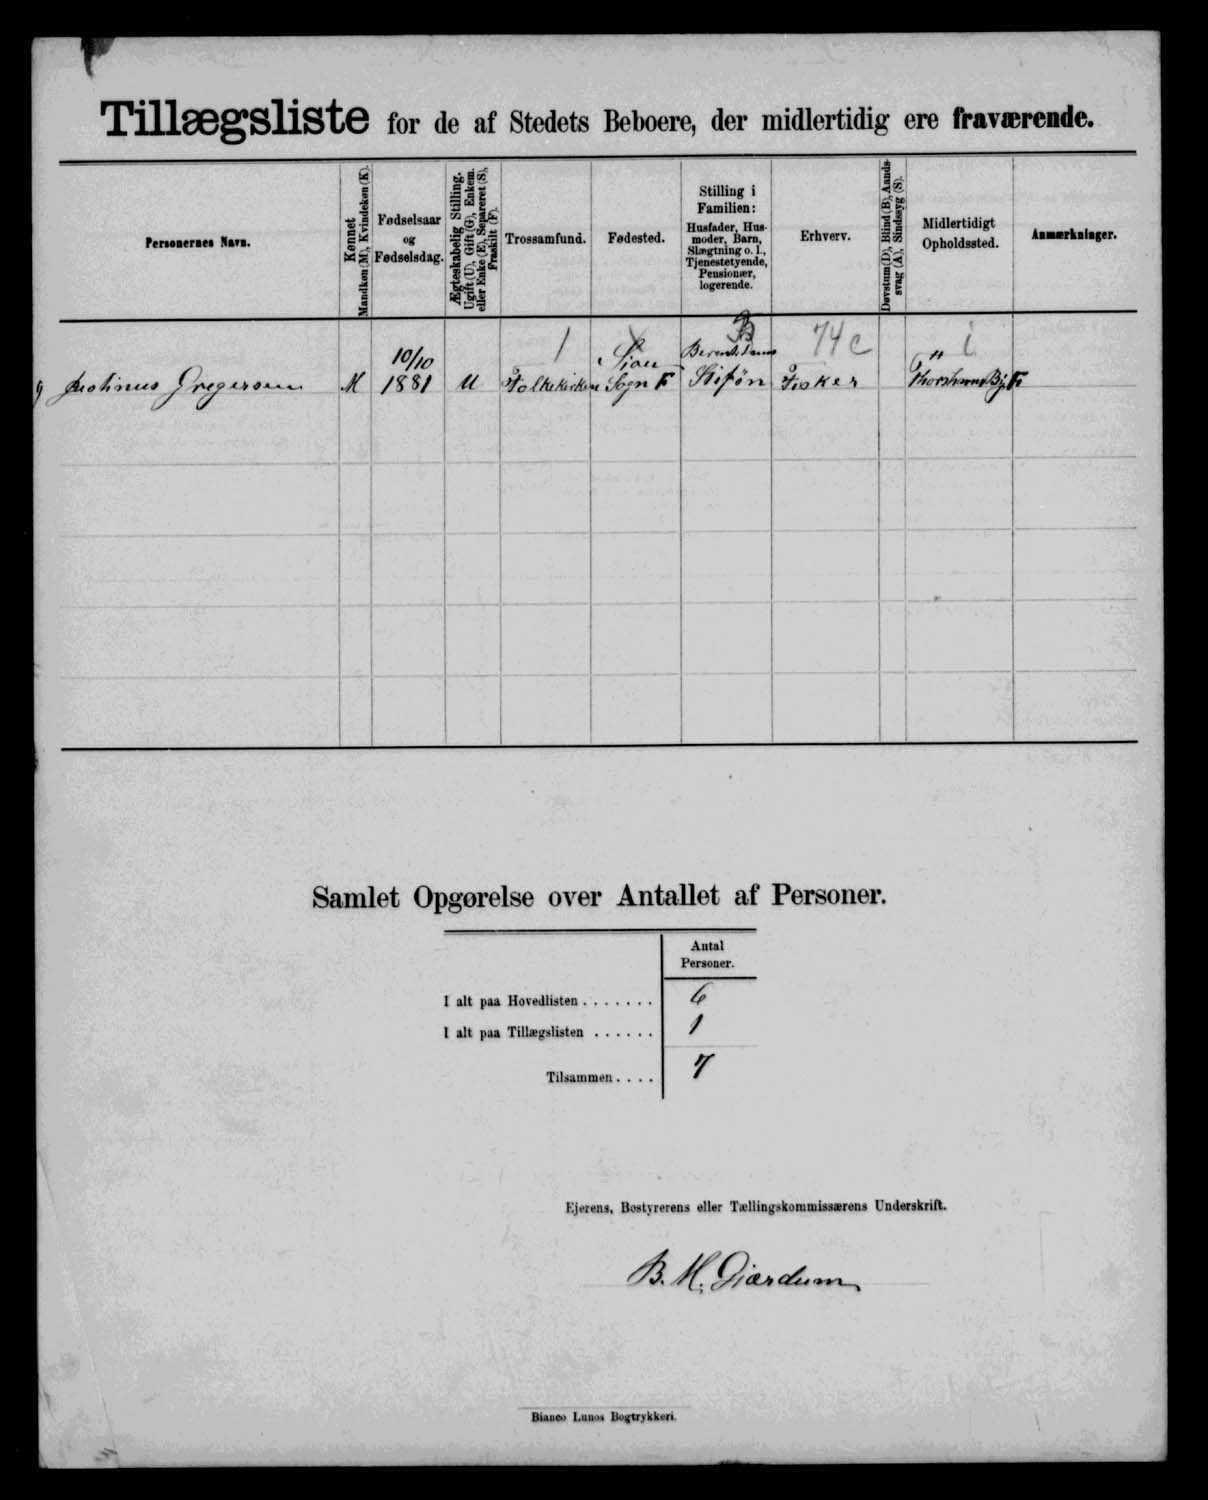 Tillægsliste for de af Stedets Beboere, der midlertidig ere fraværende.
Personernes Navn.
Kønnet
Mandkøn (M), Kvindekøn (K).
Fødselsaar
og
Fødselsdag.
Ægteskabelig Stilling.
Ugift (U), Gift (G), Enkem.
eller Enke (E), Separeret (S),
Fraskilt (F).
Trossamfund.
Fødested.
Stilling i
Familien:
Husfader, Hus-
moder, Barn,
Slægtning o. l.,
Tjenestetyende,
Pensionær,
logerende.
Erhverv.
Døvstum (D), Blind (B), Aands-
svag (A), Sindssyg (S).
Midlertidigt
Opholdssted.
Anmærkninger.
1
B
74 c
i
10/10
Gregersen M 1881 U Folkekirken Sogn F Stifsøn Fisker Thorshavns By F
Samlet Opgørelse over Antallet af Personer.
Antal
Personer.
I alt paa Hovedlisten . . . . . . . 6
I alt paa Tillægslisten . . . . . . 1
Tilsammen . . . . 7
Ejerens, Bestyrerens eller Tællingskommissærens Underskrift.
B. M. Djærdum
Bianco Lunos Bogtrykkeri.